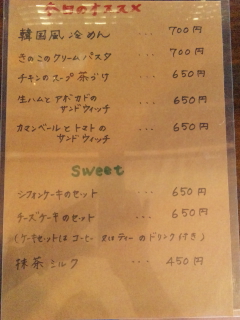 今日のオススメ
韓国風 冷めん ... 700円
きのこのクリームパスタ ... 700円
チキンのスープ茶づけ ... 650円
生ハムと アボカドの
サンドウィッチ ... 650円
カマンベールと トマトの
サンドウィッチ ... 650円
Sweet
シフォンケーキのセット ... 650円
チーズケーキのセット ... 650円
(ケーキセットは コーヒー 又はティー のドリンク付き)
抹茶ミルク ... 450円